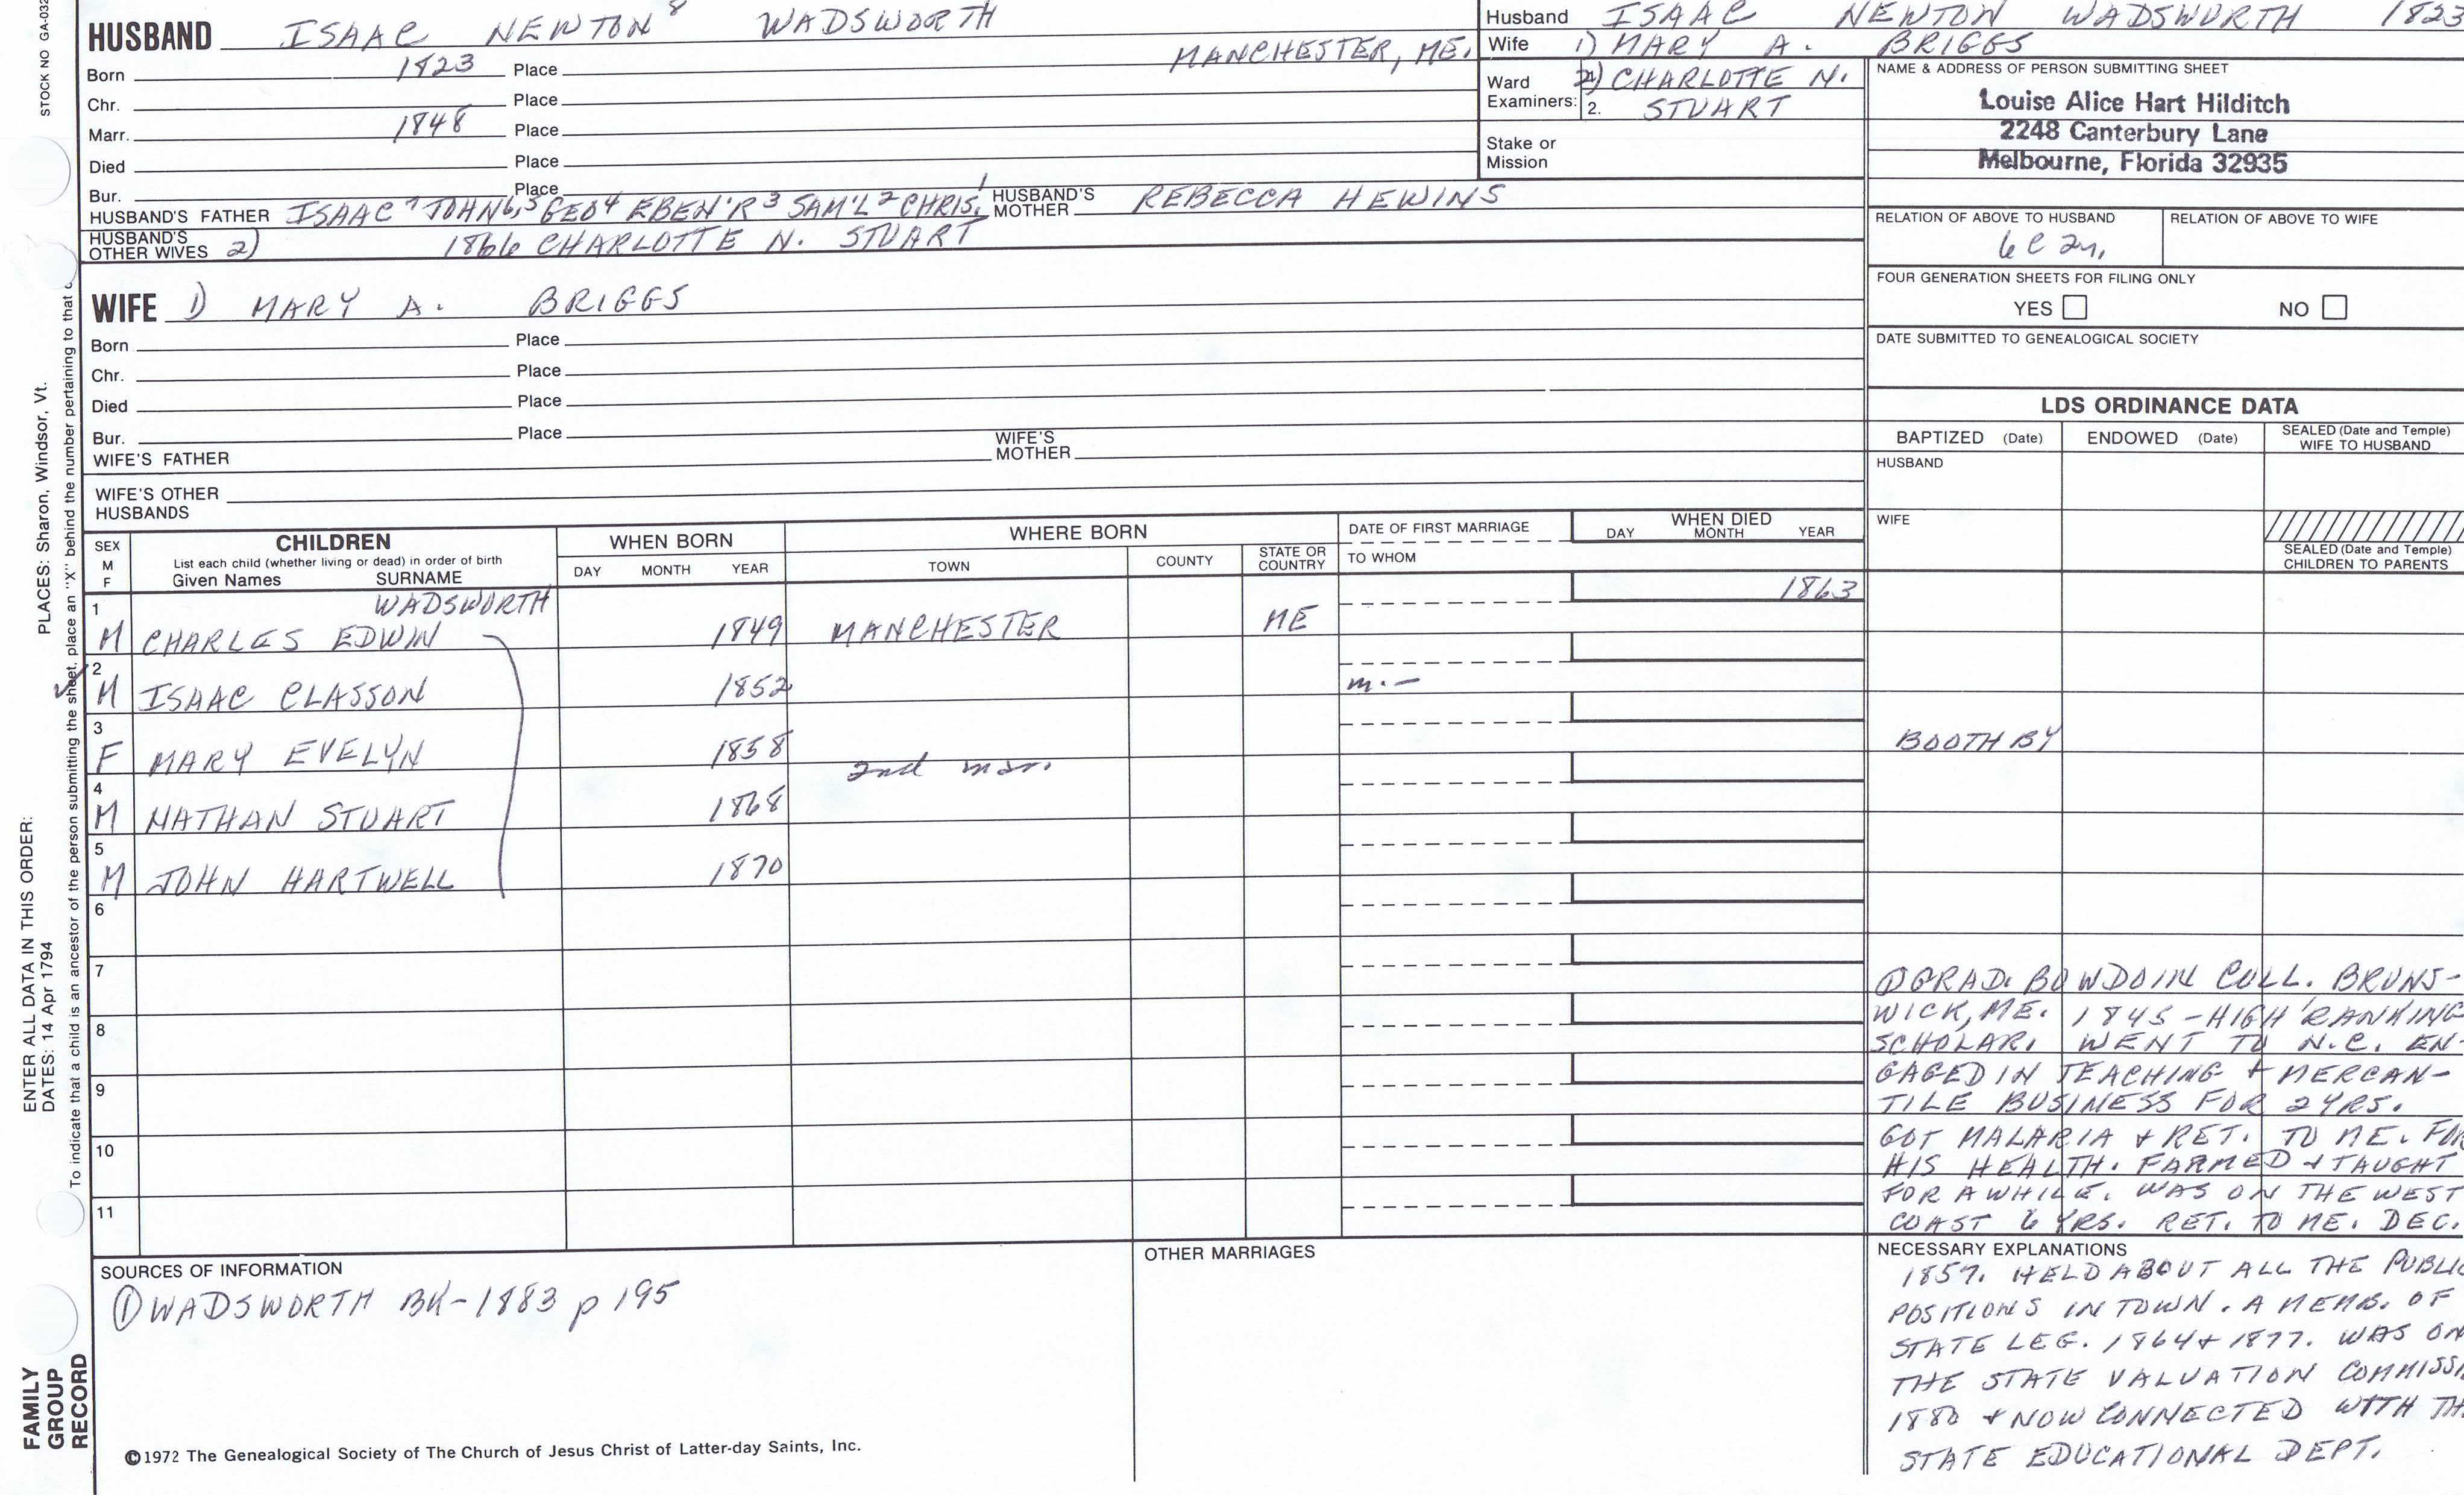 STOCK NO GA-032
HUSBAND ISAAC NEWTON 8 WADSWORTH
Born 1823 Place MANCHESTER, ME.
Chr. Place
Marr. 1848 Place
Died Place
Bur. Place
HUSBAND'S FATHER ISAAC 7 JOHN 6,5 GEO 4 EBEN'R 3 SAM'L 2 CHRIS. 1 HUSBAND'S MOTHER REBECCA HEWINS
HUSBAND'S OTHER WIVES 2) 1866 CHARLOTTE N. STUART
WIFE 1) MARY A. BRIGGS
Born Place
Chr. Place
Died Place
Bur. Place
WIFE'S FATHER WIFE'S MOTHER
WIFE'S OTHER HUSBANDS
Husband ISAAC NEWTON WADSWORTH 1823
Wife 1) MARY A. BRIGGS
Ward 2) CHARLOTTE N.
Examiners: 2. STUART
Stake or
Mission
NAME & ADDRESS OF PERSON SUBMITTING SHEET
Louise Alice Hart Hilditch
2248 Canterbury Lane
Melbourne, Florida 32935
RELATION OF ABOVE TO HUSBAND RELATION OF ABOVE TO WIFE
6C 2r,
FOUR GENERATION SHEETS FOR FILING ONLY
YES NO
DATE SUBMITTED TO GENEALOGICAL SOCIETY
LDS ORDINANCE DATA
BAPTIZED (Date) ENDOWED (Date) SEALED (Date and Temple) WIFE TO HUSBAND
HUSBAND
WIFE
SEALED (Date and Temple)
CHILDREN TO PARENTS
SEX M F CHILDREN WHEN BORN WHERE BORN DATE OF FIRST MARRIAGE WHEN DIED
List each child (whether living or dead) in order of birth
Given Names SURNAME DAY MONTH YEAR TOWN COUNTY STATE OR COUNTRY TO WHOM DAY MONTH YEAR
WADSWORTH
1 M CHARLES EDWIN 1849 MANCHESTER ME 1863
2 M ISAAC CLASSON 1852 m. –
3 F MARY EVELYN 1858 BOOTHBY
2nd mar.
4 M NATHAN STUART 1868
5 M JOHN HARTWELL 1870
6
7
8
9
10
11
① GRAD. BOWDOIN COLL. BRUNS-
WICK, ME. 1845 - HIGH RANKING
SCHOLAR. WENT TO N.C. EN-
GAGED IN TEACHING + MERCAN-
TILE BUSINESS FOR 2 YRS.
GOT MALARIA + RET. TO ME. FOR
HIS HEALTH. FARMED + TAUGHT
FOR AWHILE. WAS ON THE WEST
COAST 6 YRS. RET. TO ME. DEC.
NECESSARY EXPLANATIONS
1857. HELD ABOUT ALL THE PUBLIC
POSITIONS IN TOWN. A MEMB. OF
STATE LEG. 1864 + 1877. WAS ON
THE STATE VALUATION COMMISS
1880 + NOW CONNECTED WITH TH
STATE EDUCATIONAL DEPT.
SOURCES OF INFORMATION
① WADSWORTH BK-1883 p 195
OTHER MARRIAGES
©1972 The Genealogical Society of The Church of Jesus Christ of Latter-day Saints, Inc.
FAMILY
GROUP
RECORD
ENTER ALL DATA IN THIS ORDER:
DATES: 14 Apr 1794
PLACES: Sharon, Windsor, Vt.
To indicate that a child is an ancestor of the person submitting the sheet, place an "X" behind the number pertaining to that c